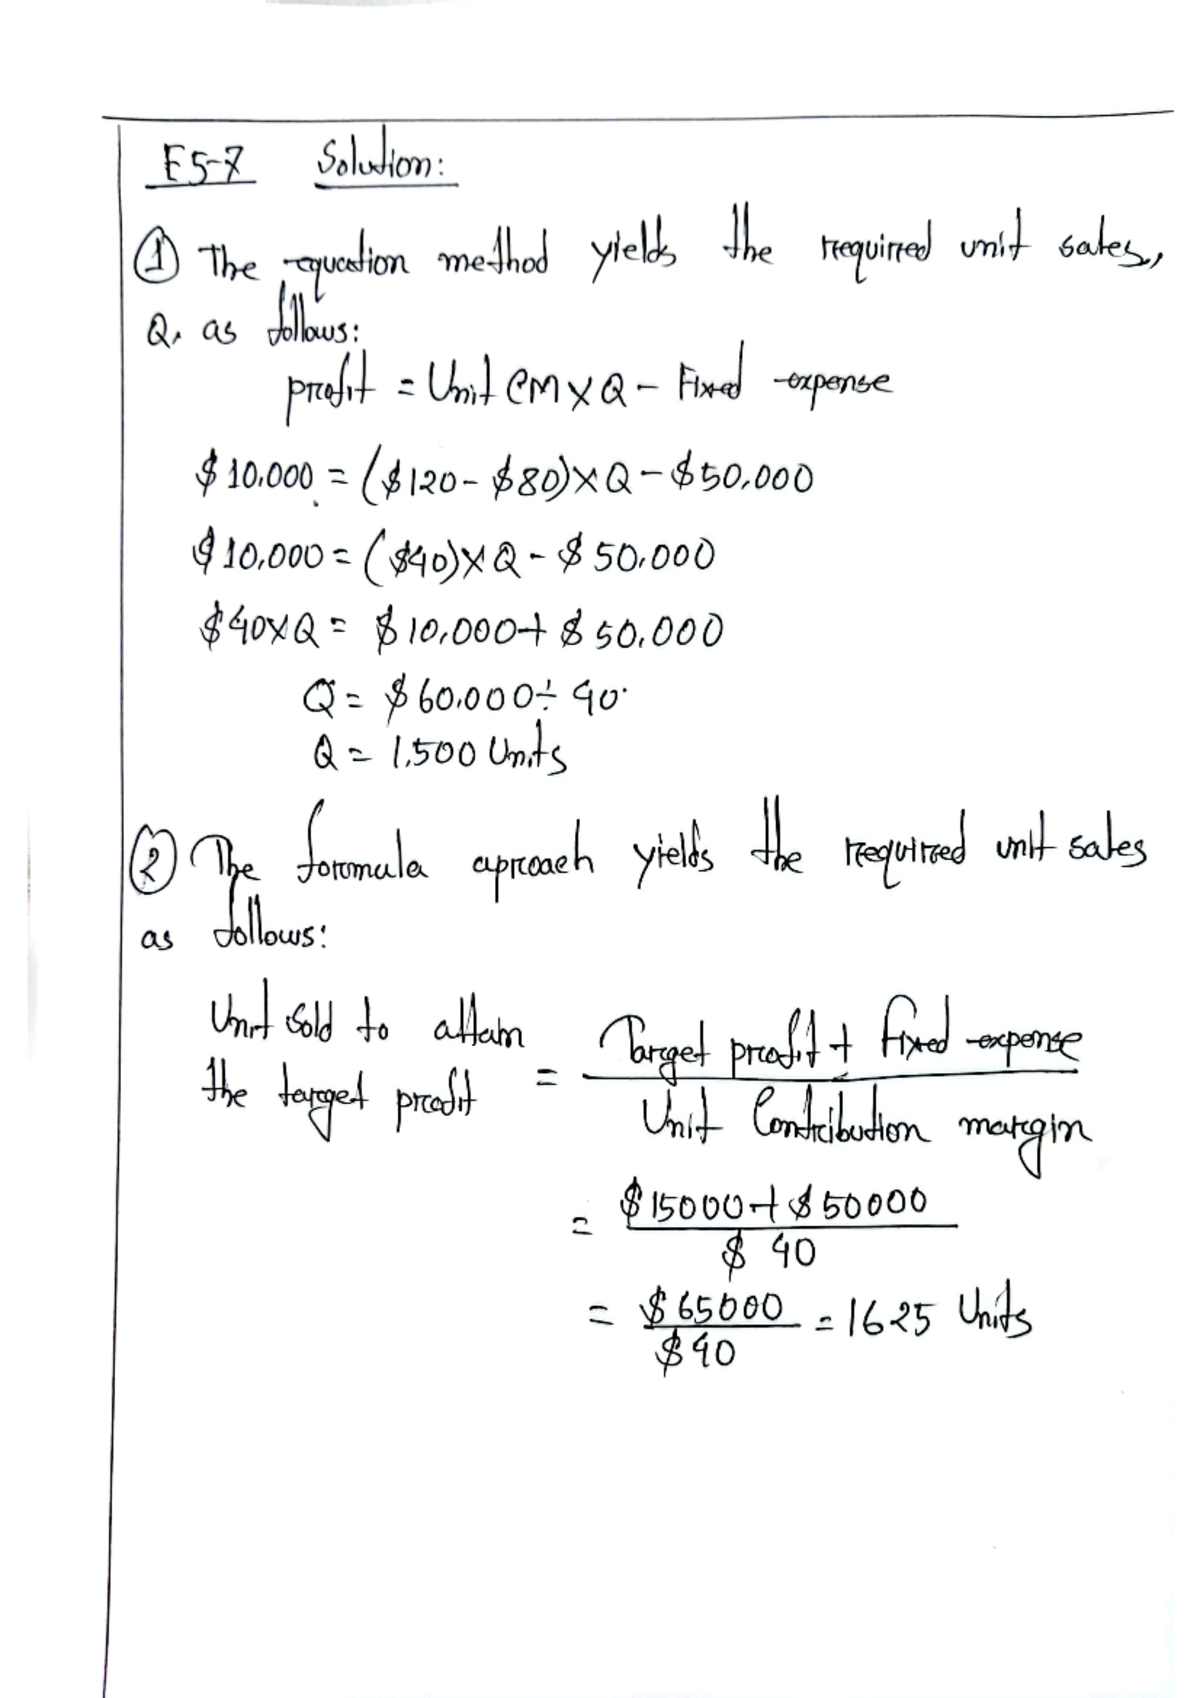 E5-7 Solution:
① The equation method yields the required unit sales,
Q, as follows:
profit = Unit CM × Q - Fixed expense
$10,000 = ($120 - $80) × Q - $50,000
$10,000 = ($40) × Q - $50,000
$40 × Q = $10,000 + $50,000
Q = $60,000 ÷ 40
Q = 1,500 Units
② The formula aproach yields the required unit sales
as follows:
Unit Sold to attain the target profit = Target profit + fixed expense / Unit Contribution margin
= $15000 + $50000 / $40
= $65000 / $40 = 1625 Units